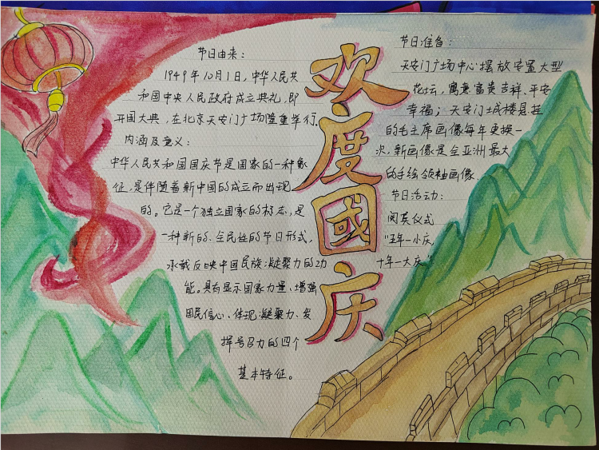 节日由来：
1949年10月1日，中华人民共
和国中央人民政府成立典礼，即
开国大典，在北京天安门广场隆重举行。
内涵及意义：
中华人民共和国国庆节是国家的一种象
征，是伴随着新中国的成立而出现
的。它是个独立国家的标志，是
一种新的、全民性的节日形式，
承载反映中国民族凝聚力的功
能。具有显示国家力量、增强
国民信心，体现凝聚力、发
挥号召力的四个
基本特征。
欢度國庆
节日准备：
天安门广场中心摆放安置大型
花坛，寓意富贵吉祥、平安
幸福；天安门城楼悬挂
的毛主席画像每年更换一
次，新画像是全亚洲最大
的手绘领袖画像
节日活动：
阅英仪式
“五年一小庆，
十年一大庆”